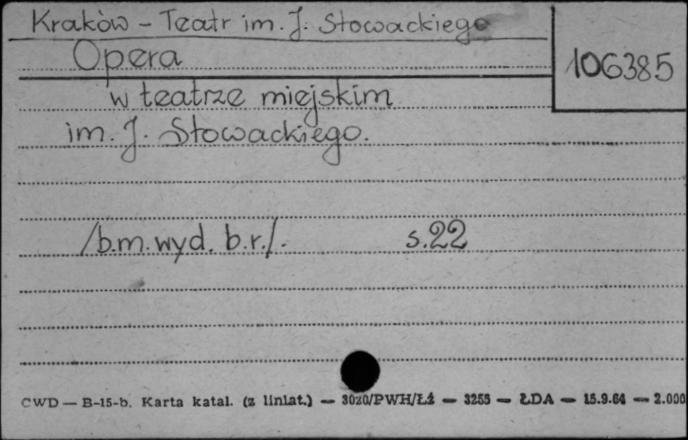 Kraków - Teatr im. J. Słowackiego
Opera
106385
w teatrze miejskim
im. J. Słowackiego.
/b.m.wyd. b.r./.   s.22
CWD — B-15-b. Karta katal. (z liniat.) — 3020/PWH/Łź — 3255 — ŁDA — 15.9.64 — 2.000